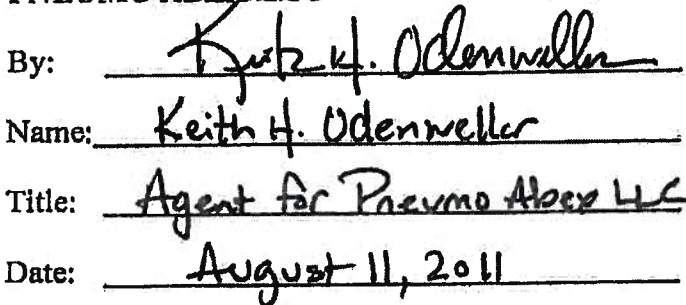 By: Keith H. Odenweller
Name: Keith H. Odenweller
Title: Agent for Pneumo Abex LLC
Date: August 11, 2011